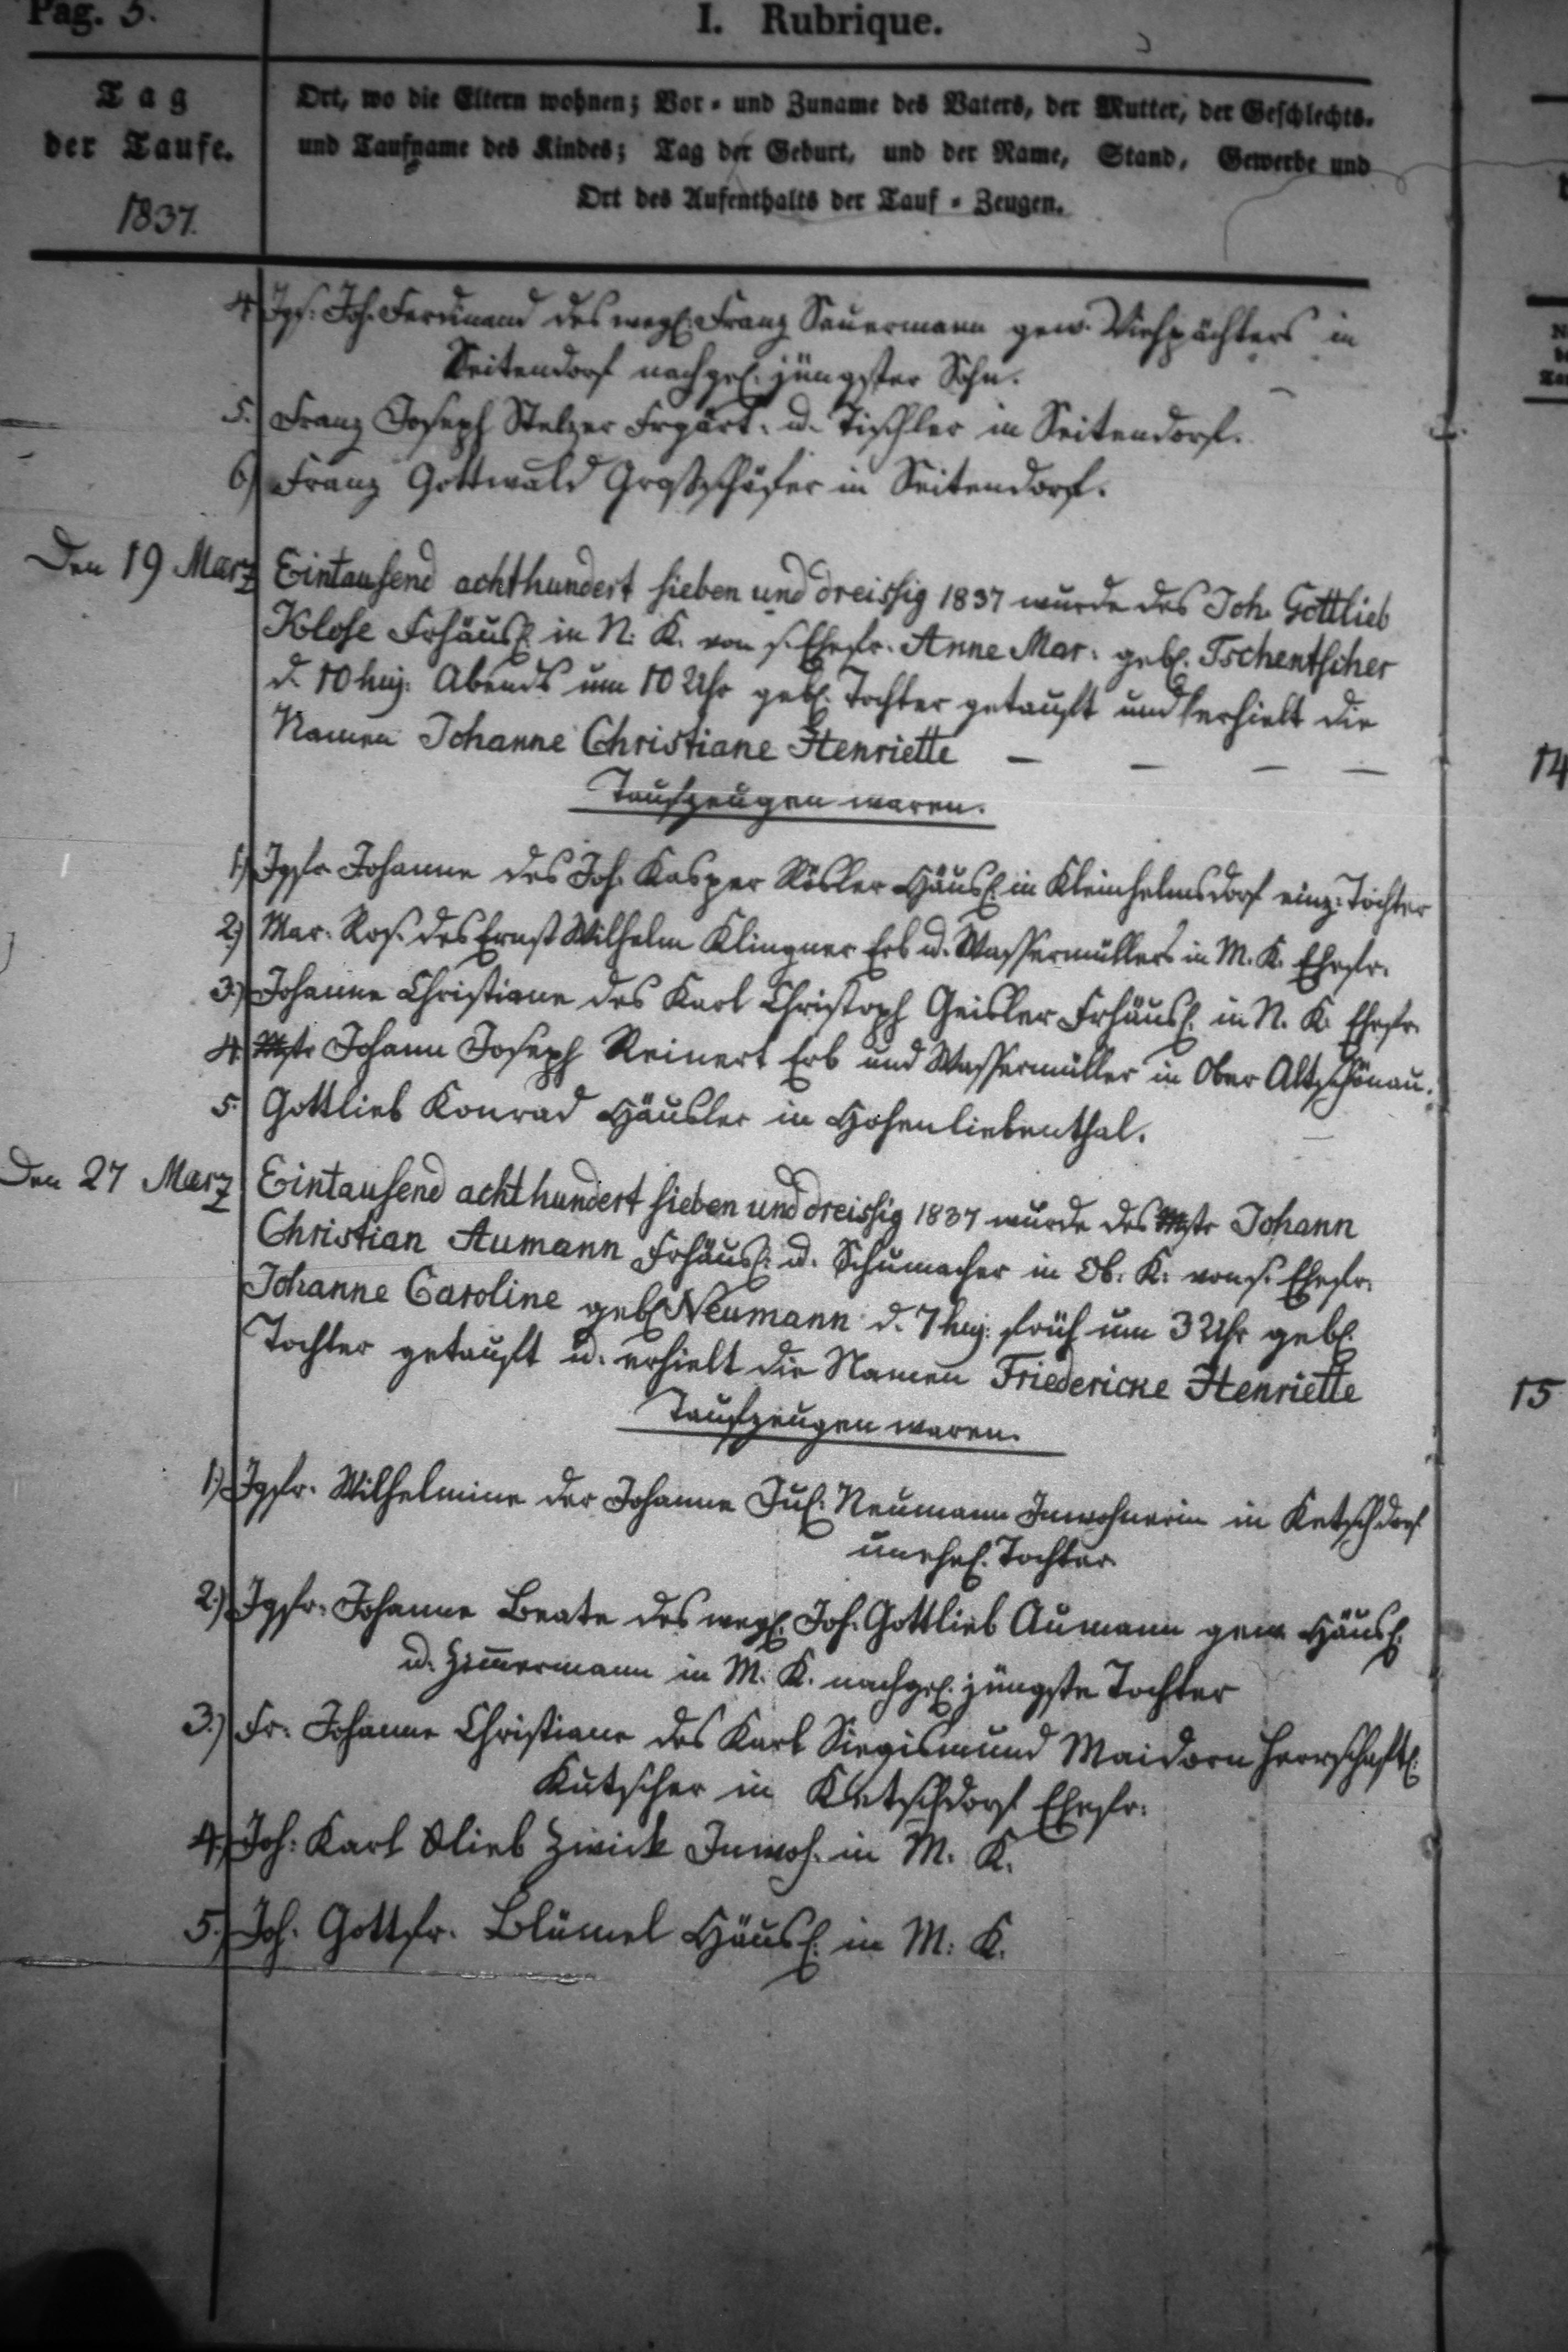 Pag. 5.
I. Rubrique.
Tag
der Taufe.
1837.
Ort, wo die Eltern wohnen; Vor- und Zuname des Vaters, der Mutter, der Geschlechts-
und Taufname des Kindes; Tag der Geburt, und der Name, Stand, Gewerbe und
Ort des Aufenthalts der Tauf-Zeugen.
4 Jgs. Joh. Ferdinand des wegl. Franz Sauermann gew. Viehpächters in
Seitendorf nachgel. jüngster Sohn.
5. Franz Joseph Stelzer Frgärt. u. Tischler in Seitendorf.
6) Franz Gottwald Großschäfer in Seitendorf.
Den 19 Marz Eintausend achthundert sieben und dreissig 1837 wurde des Joh. Gottlieb
Klose Frhäusl. in N. K. von s. Ehefr. Anne Mar. geb. Tschentscher
d. 10 huj. Abends um 10 Uhr geb. Tochter getauft und erhielt die
Namen Johanne Christiane Henriette — — — —
Taufzeugen waren.
1.) Jgfr. Johanne des Joh. Kasper Rösler Häusl. in Kleinhelmsdorf einz. Tochter
2.) Mar. Ros. des Ernst Wilhelm Klingner Erb u. Wassermüllers in M. K. Ehefr.
3.) Johanne Christiane des Karl Christoph Geisler Frhäusl. in N. K. Ehefr.
4. Mstr Johann Joseph Reinert Erb und Wassermüller in Ober Altschönau.
5. Gottlieb Konrad Häusler in Hohenliebenthal.
Den 27 Marz Eintausend achthundert sieben und dreissig 1837 wurde des Mstr Johann
Christian Aumann Frhäusl. u. Schumacher in Ob. K. von s. Ehefr.
Johanne Caroline geb. Neumann d. 7 huj. früh um 3 Uhr geb.
Tochter getauft u. erhielt die Namen Friedericke Henriette
Taufzeugen waren.
1.) Jgfr. Wilhelmine der Johanne Jul. Neumann Inwohnerin in Ketschdorf
unehel. Tochter
2.) Jgfr. Johanne Beate des wegl. Joh. Gottlieb Aumann gew. Häusl.
u. Zimmermann in M. K. nachgel. jüngste Tochter
3.) Fr. Johanne Christiane des Karl Siegismund Maidorn herrschaftl.
Kutscher in Ketschdorf Ehefr.
4.) Joh. Karl Glieb Zwick Inwoh. in M. K.
5.) Joh. Gottfr. Blümel Häusl. in M. K.
14
15